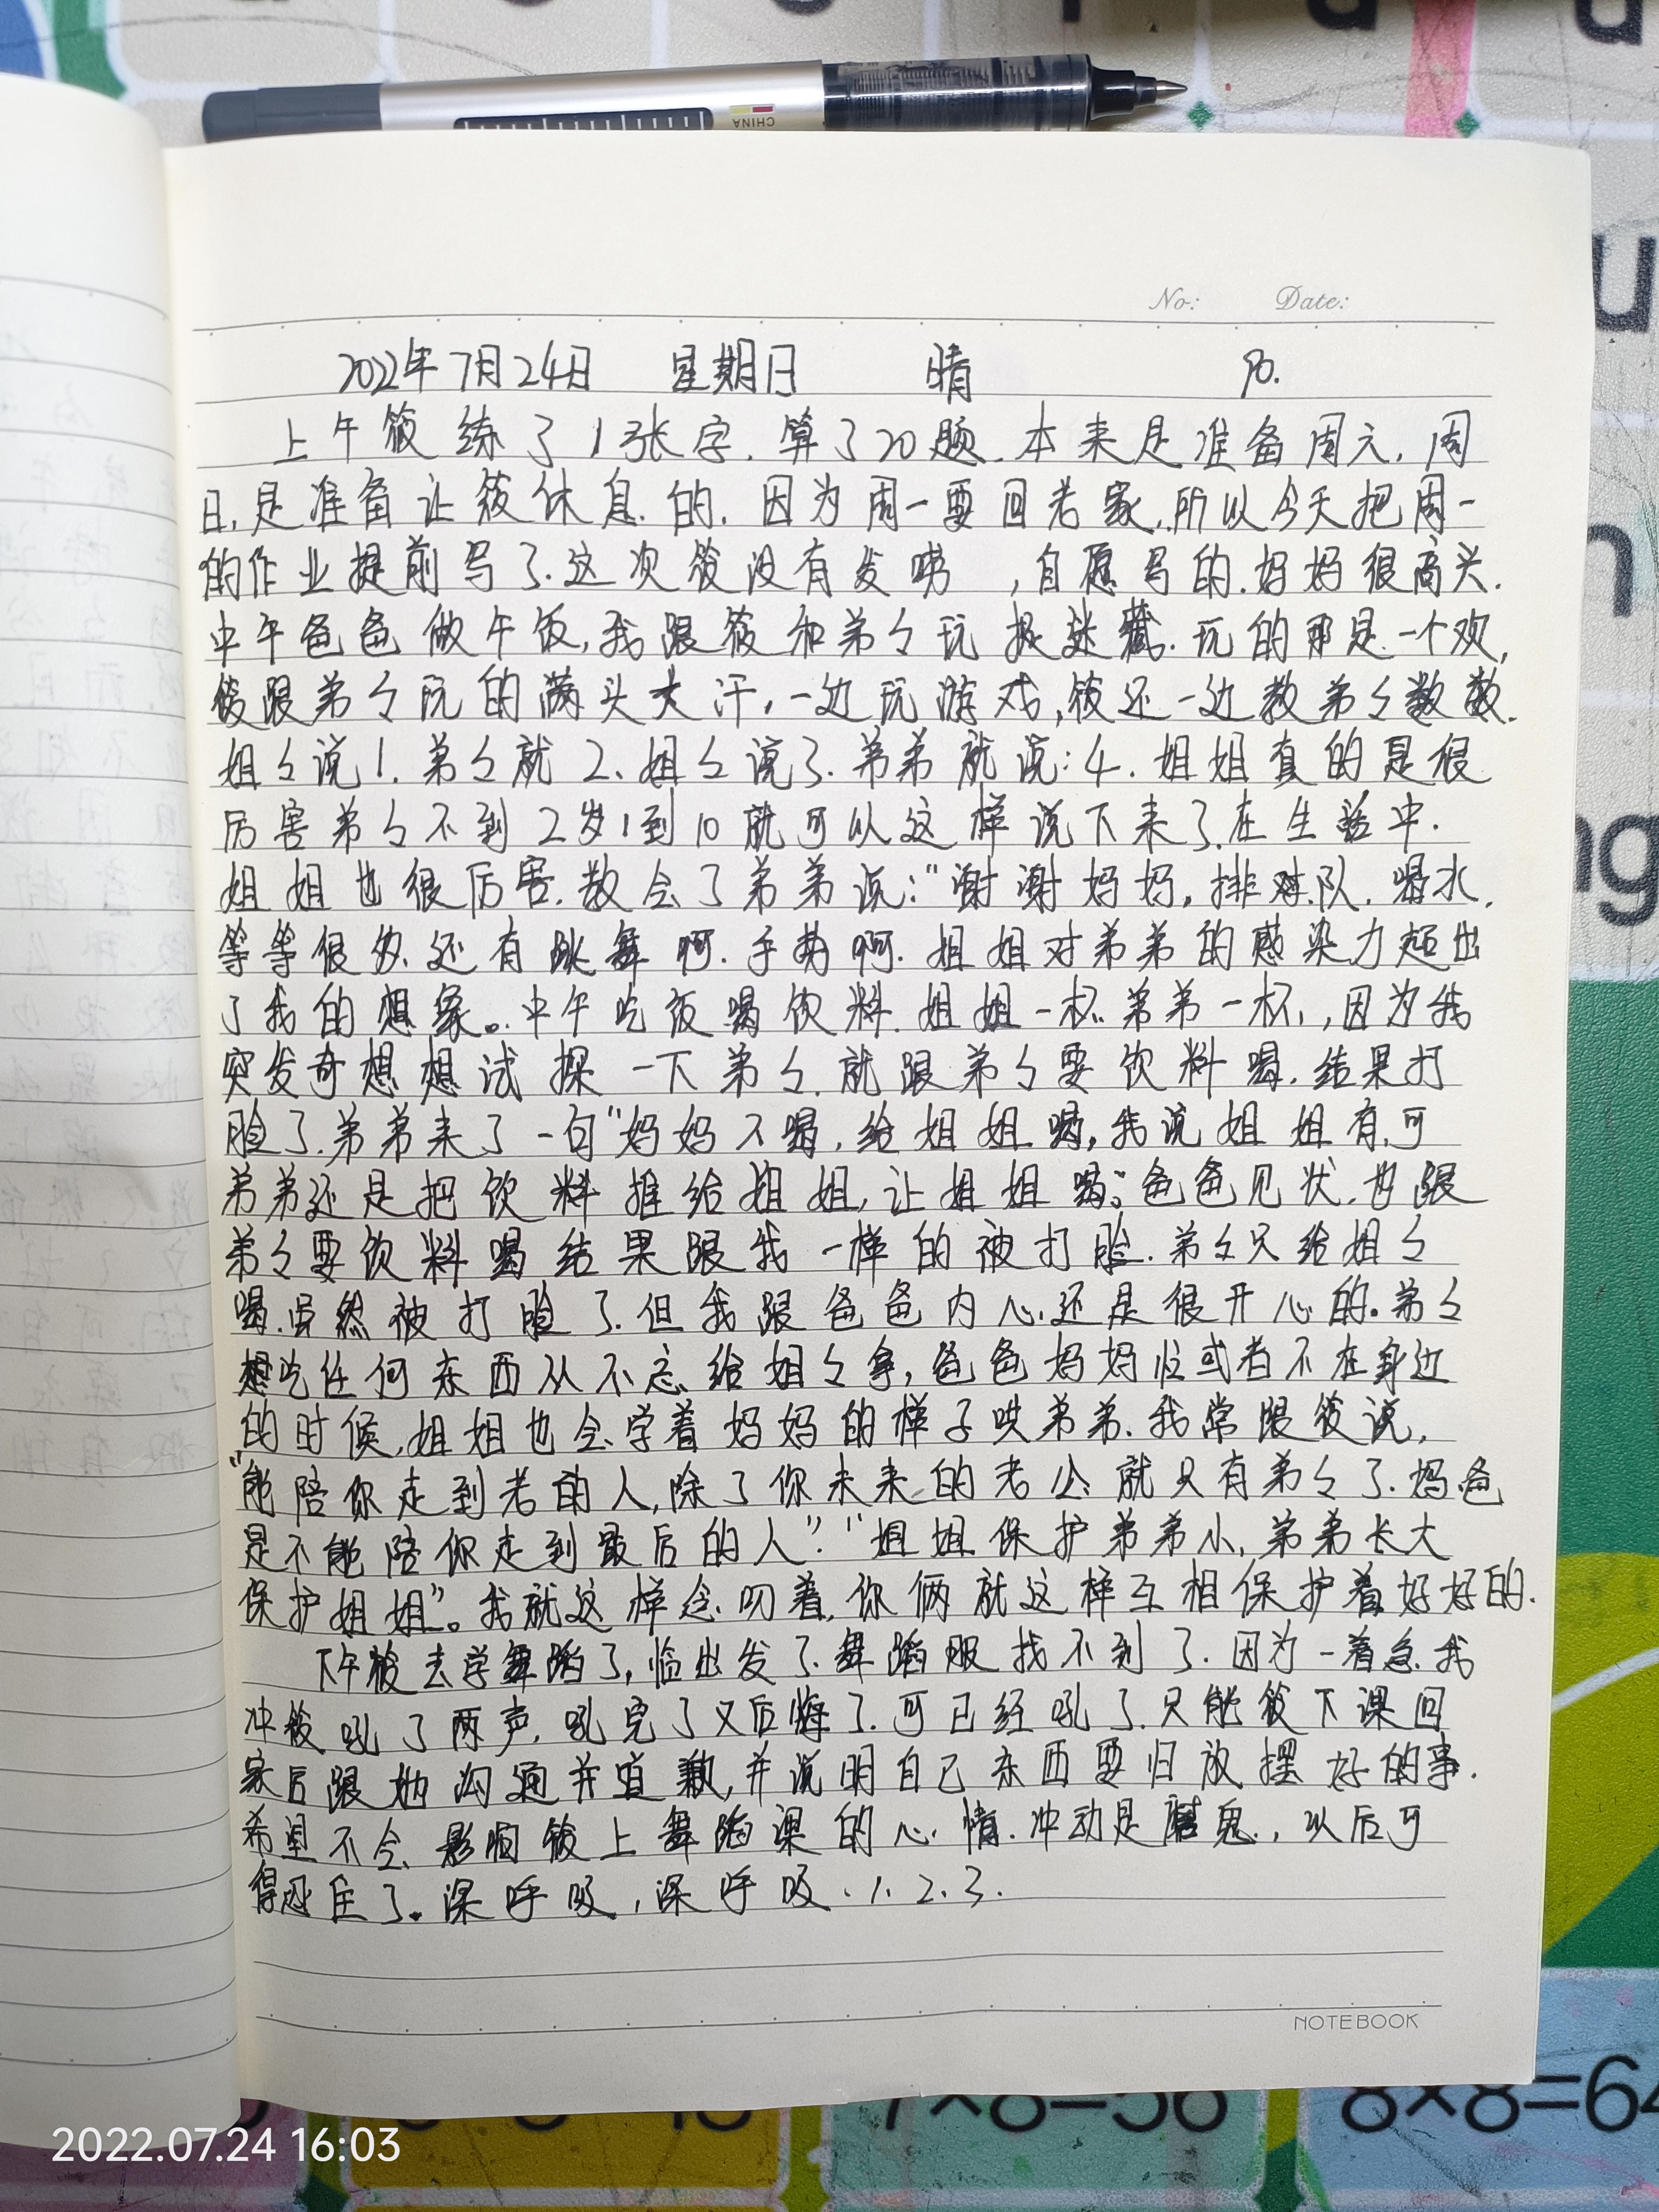 CHINA
No: Date:
2022年7月24日 星期日 晴 70.
上午筱练了1张字.算了20题.本来是准备周六.周
日.是准备让筱休息.的.因为周一要回老家.所以今天把周一
的作业提前写了.这次筱没有发唠 ,自愿写的.妈妈很高兴.
中午爸爸做午饭,我跟筱和弟々玩捉迷藏.玩的那是一个欢,
筱跟弟々玩的满头大汗,一边玩游戏,筱还一边教弟々数数.
姐々说1.弟々就2、姐々说3.弟弟就说:4.姐姐真的是很
厉害弟々不到2岁1到10就可以这样说下来了.在生活中.
姐姐也很厉害.教会了弟弟说:“谢谢妈妈,排队.喝水.
等等很多.还有跳舞啊.手势啊.姐姐对弟弟的感染力超出
了我的想象。.中午吃饭喝饮料.姐姐一杯.弟弟一杯,,因为我
突发奇想想试探一下弟々.就跟弟々要饮料喝.结果打
脸了.弟弟来了一句“妈妈不喝,给姐姐喝,我说姐姐有.可
弟弟还是把饮料推给姐姐,让姐姐喝”爸爸见状.也跟
弟々要饮料喝结果跟我一样的被打脸.弟々只给姐々
喝.虽然被打脸了.但我跟爸爸内心还是很开心的。弟々
想吃任何东西从不忘给姐々拿,爸爸妈妈忙或者不在身边
的时候,姐姐也会学着妈妈的样子哄弟弟.我常跟筱说,
“能陪你走到老的人,除了你未来的老公就只有弟々了.妈爸
是不能陪你走到最后的人”.“姐姐保护弟弟小,弟弟长大
保护姐姐”。我就这样念叨着,你俩就这样互相保护着好好的.
下午筱去学舞蹈了,临出发了.舞蹈服找不到了.因为一着急.我
冲筱吼了两声,吼完了又后悔了.可已经吼了.只能筱下课回
家后跟她沟通并道歉,并说明自己东西要归放摆好的事.
希望不会影响筱上舞蹈课的心情.冲动是魔鬼,以后可
得忍住了。深呼吸,深呼吸.1.2.3.
NOTEBOOK
7×8=56
8×8=64
2022.07.24 16:03